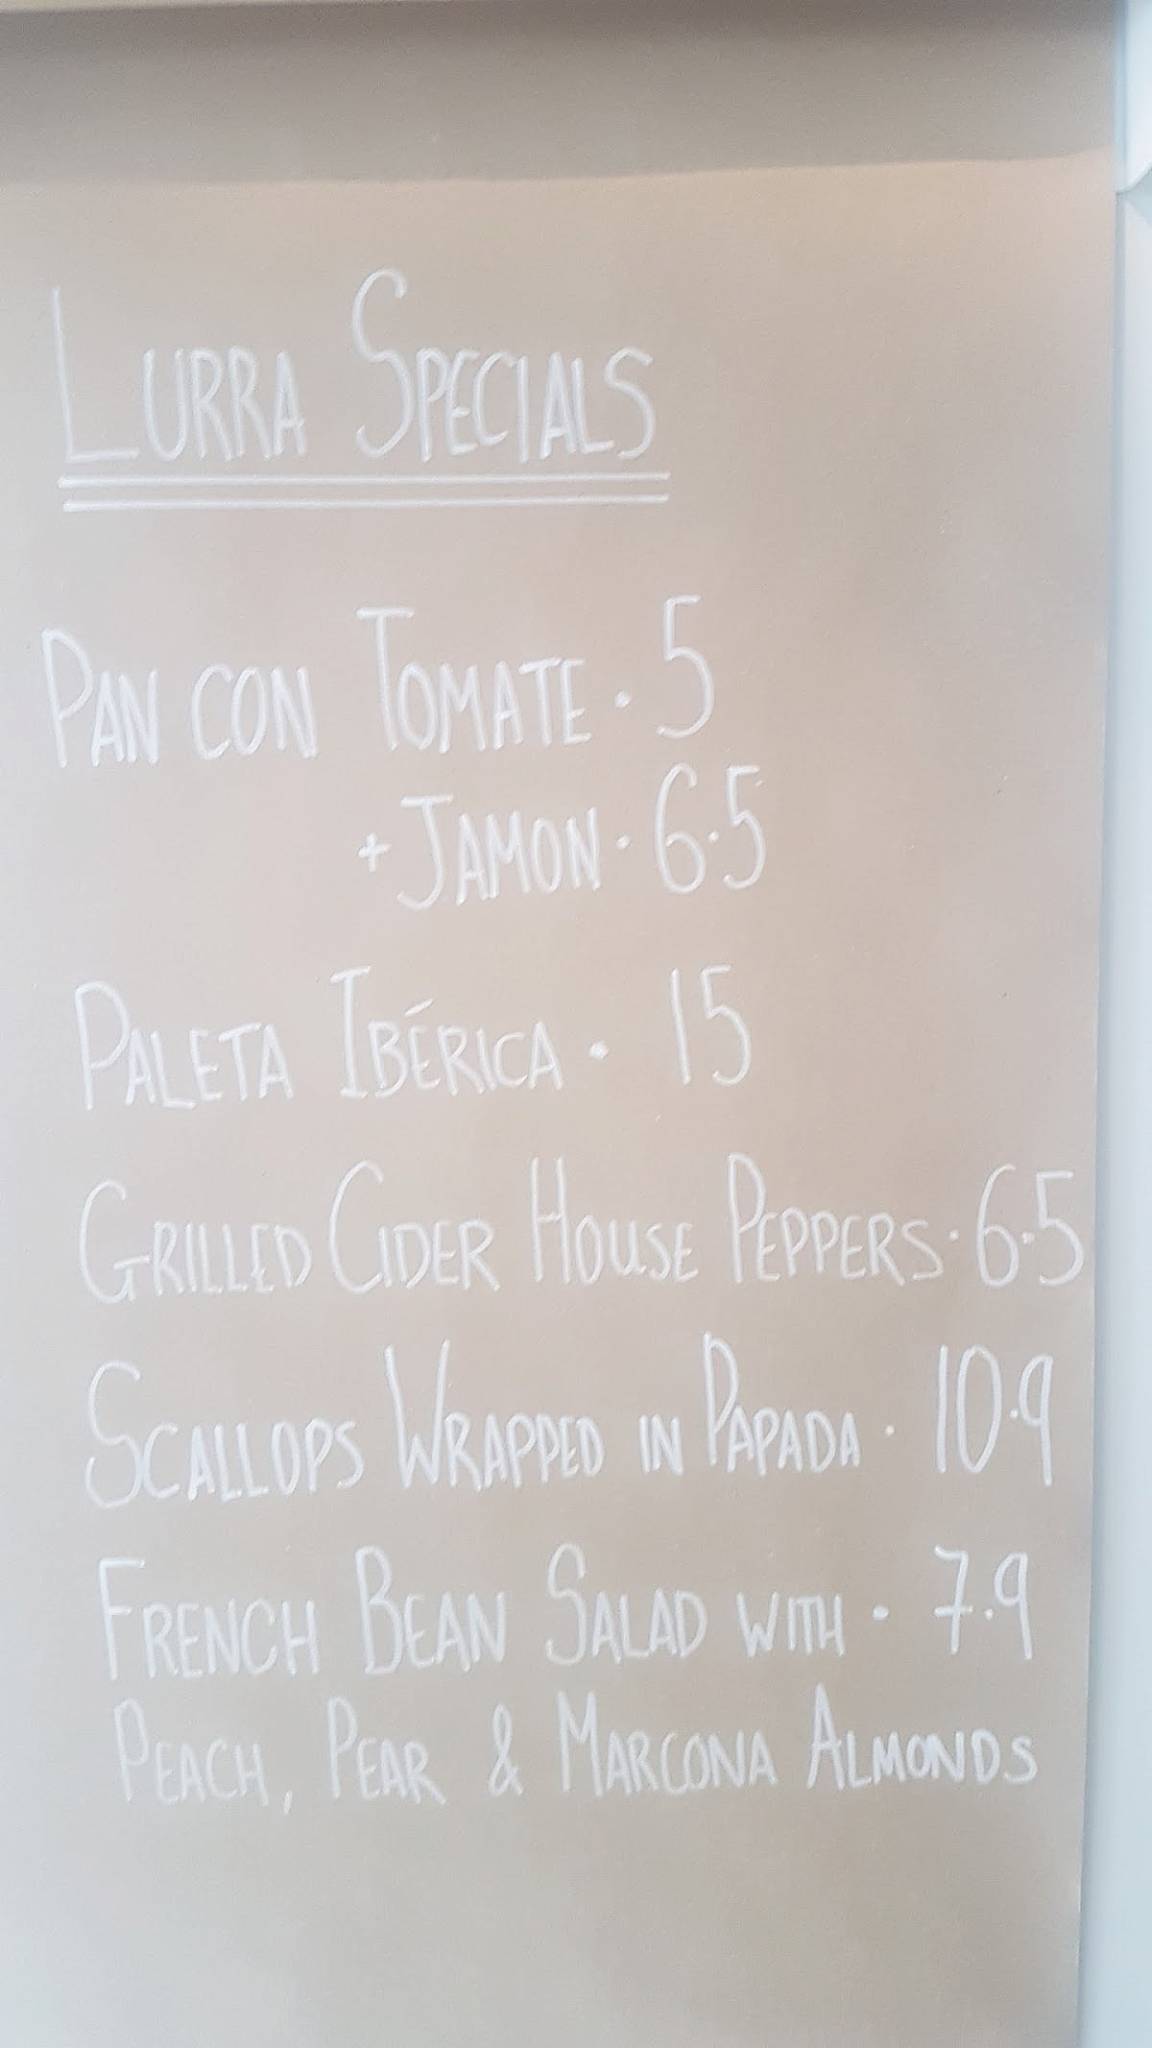 LURRA SPECIALS
PAN CON TOMATE · 5
+ JAMON · 6.5
PALETA IBÉRICA · 15
GRILLED CIDER HOUSE PEPPERS · 6.5
SCALLOPS WRAPPED IN PAPADA · 10.9
FRENCH BEAN SALAD WITH · 7.9
PEACH, PEAR & MARCONA ALMONDS